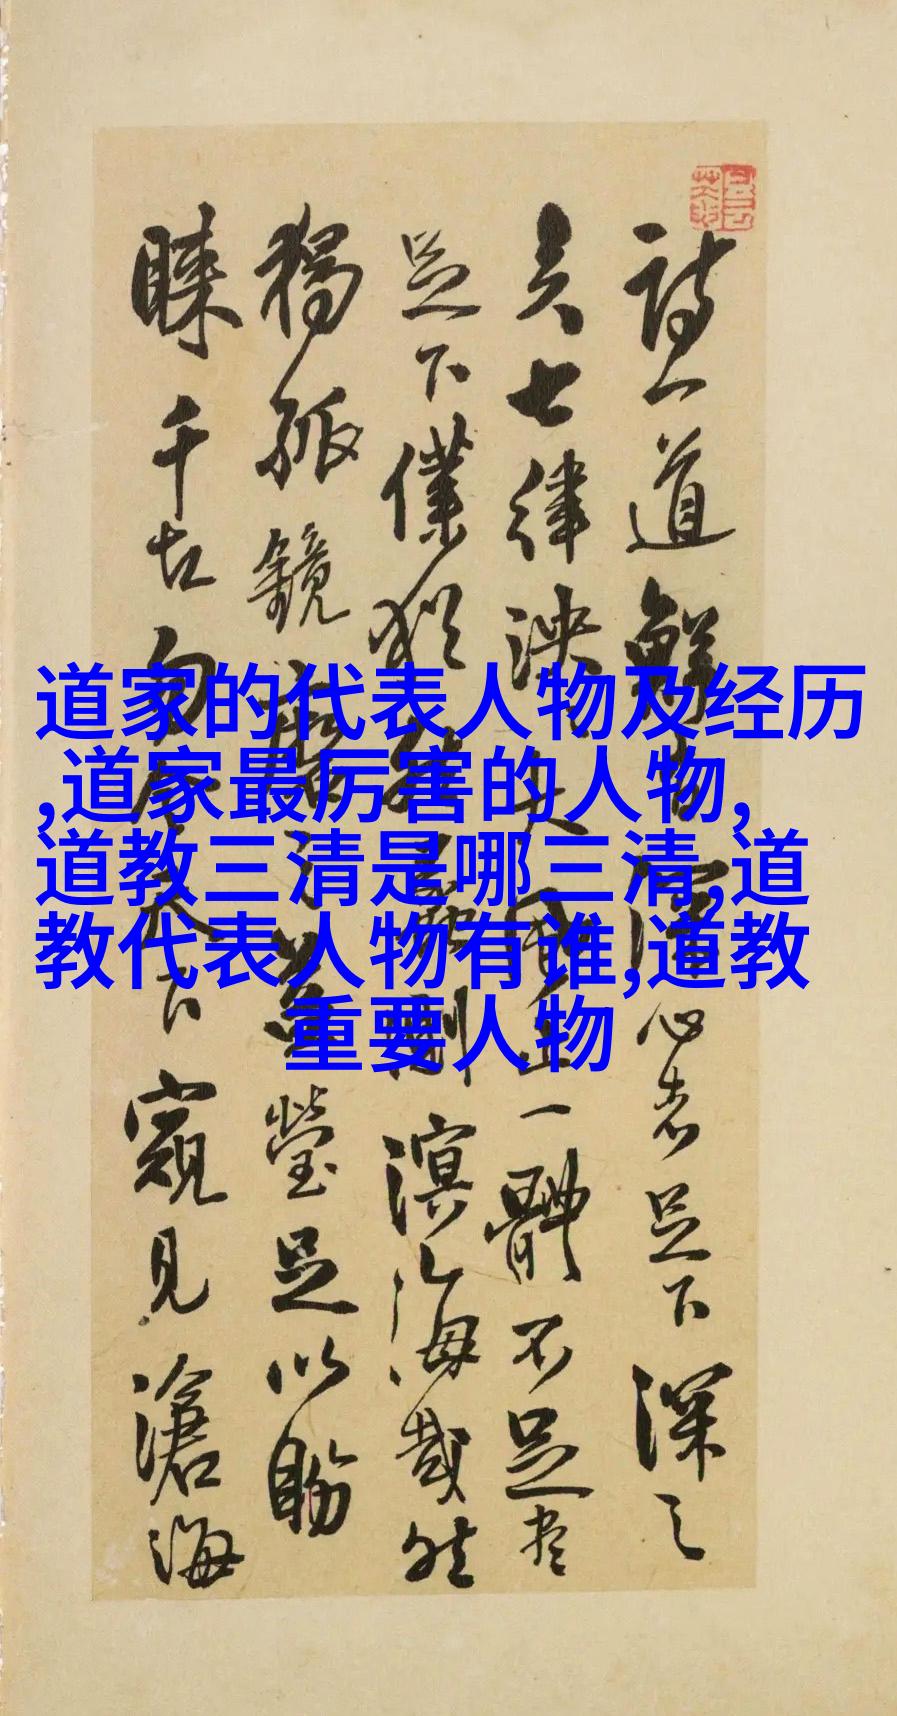 道家的代表人物及经历
,道家最厉害的人物,
道教三清是哪三清,道
教代表人物有谁,道教
重要人物
詩一道鮮心者足下深之
矣七律泱一體不足盡
足下僕溟海哉然
獨孤鏡瑩足以盼
睞千古窺見滄海